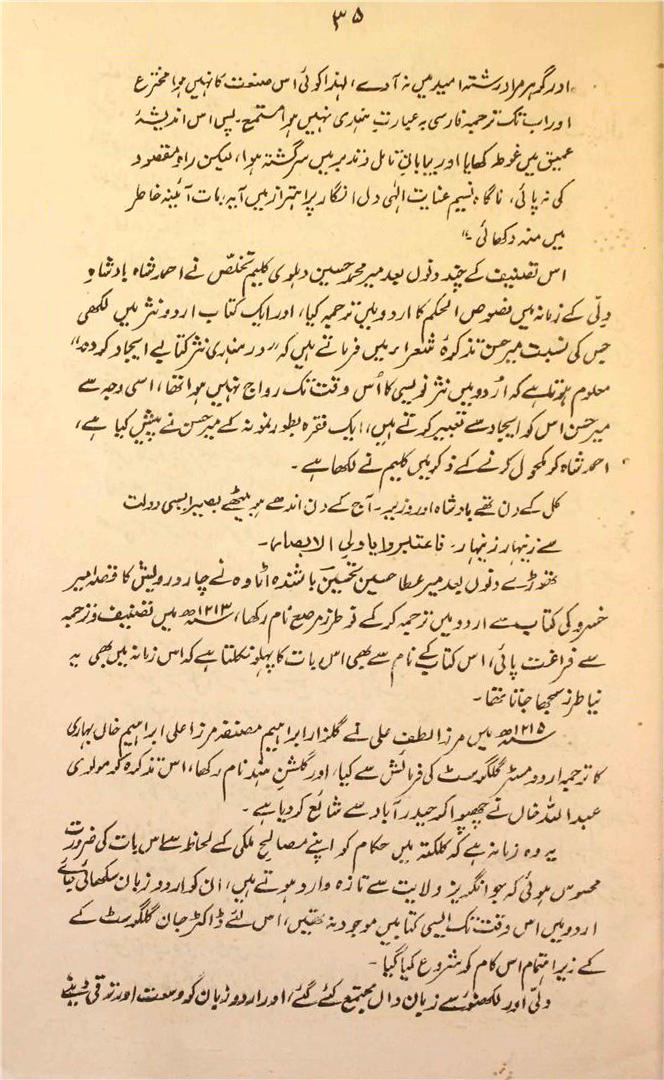 ۳۵
اور گوہر مراد رشتہ امید میں نہ آدے، لہذا کوئی اس صنعت کا نہیں ہوا مخترع
اور اب تک ترجمہ فارسی بہ عبارت ہندی نہیں ہوا مستمع۔ پس اس اندیشۂ
عمیق میں غوطہ کھایا اور بیابان تامل و تدبر میں سرگشتہ ہوا، لیکن راہ مقصود
کی نہ پائی، ناگاہ نسیم عنایت الٰہی دل افگار پر اہتزاز میں آ یہ بات آئینہ خاطر
میں منہ دکھائی۔"
اس تصنیف کے چند دنوں بعد میر محمد حسین دہلوی کلیم تخلص نے احمد شاہ بادشاہِ
دلی کے زمانہ میں فصوص الحکم کا اردو میں ترجمہ کیا، اور ایک کتاب اردو نثر میں لکھی
جس کی نسبت میر حسن تذکرۂ شعراء میں فرماتے ہیں کہ "در ہندی نثر کتابے ایجاد کردہ"
معلوم ہوتا ہے کہ اُردو میں نثر نویسی کا اُس وقت تک رواج نہیں ہوا تھا، اسی وجہ سے
میر حسن اس کو ایجاد سے تعبیر کرتے ہیں، ایک فقرہ بطور نمونہ کے میر حسن نے پیش کیا ہے،
احمد شاہ کو مکحول کرنے کے ذکر میں کلیم نے لکھا ہے۔
کل کے دن تھے بادشاہ اور وزیر۔ آج کے دن اندھے ہو بیٹھے بصیر ایسی دولت
سے زنہار زنہار۔ فاعتبروا یا ولی الابصار۔
تھوڑے دنوں بعد میر عطا حسین تحسین باشندہ اٹاوہ نے چار درویش کا قصہ امیر
خسرو کی کتاب سے اردو میں ترجمہ کر کے نو طرز مرصع نام رکھا، ۱۲۱۳ھ میں تصنیف و ترجمہ
سے فراغت پائی، اس کتاب کے نام سے بھی اس بات کا پہلو نکلتا ہے کہ اس زمانہ میں بھی یہ
نیا طرز سمجھا جاتا تھا۔
۱۲۱۵ھ میں مرزا لطف علی نے گلزار ابراہیم مصنفہ مرزا علی ابراہیم خاں بہاری
کا ترجمہ اردو مسٹر گلگرسٹ کی فرمائش سے کیا، اور گلشنِ ہند نام رکھا، اس تذکرہ کو مولوی
عبد اللہ خاں نے چھپوا کر حیدر آباد سے شائع کر دیا ہے۔
یہ وہ زمانہ ہے کہ کلکتہ میں حکام کو اپنے مصالح ملکی کے لحاظ سے اس بات کی ضرورت
محسوس ہوئی کہ جو انگریز ولایت سے تازہ وارد ہوتے ہیں، ان کو اردو زبان سکھائی جائے
اردو میں اس وقت تک ایسی کتابیں موجود نہ تھیں، اس لئے ڈاکٹر جان گلگرسٹ کے
کے زیر اہتمام اس کام کو شروع کیا گیا۔
دلی اور لکھنؤ سے زبان داں مجتمع کئے گئے، اور اردو زبان کو وسعت اور ترقی دینے